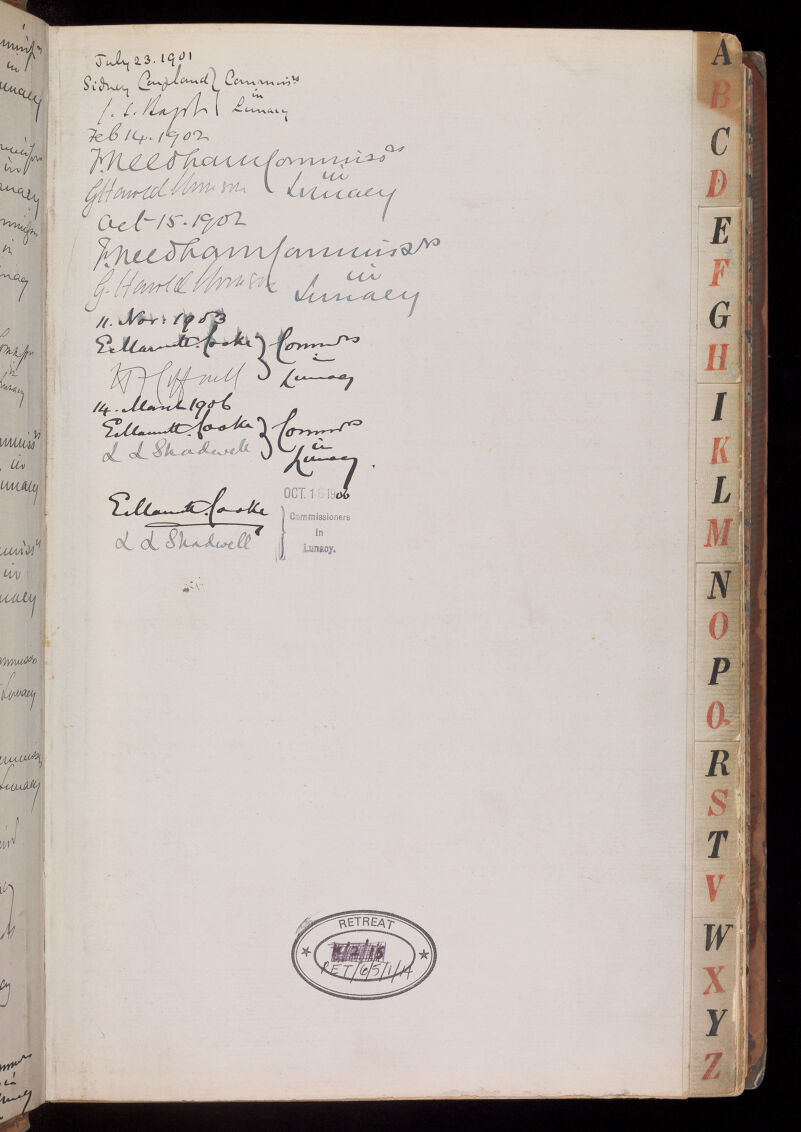 July 23. 1901
Sidney Coupland } Commiss rs
in
Lunacy
Feb 14. 1902
F. Needham Commiss rs
in
G Harold Urmson Lunacy
Oct 15. 1902
F. Needham Commiss rs
in
G. Harold Urmson Lunacy
11. Nov. 1903
E. Marriott. Cooke } Commrs
in
Lunacy
14. March 1906
E. Marriott. Cooke } Commrs
L L Shadwell in
Lunacy.
OCT. 16 1906
E. Marriott. Cooke
Commissioners
in
L L Shadwell Lunacy.
RETREAT
K/2/15
RET/6/5/1/1A
A
B
C
D
E
F
G
H
I
K
L
M
N
O
P
Q
R
S
T
V
W
X
Y
Z